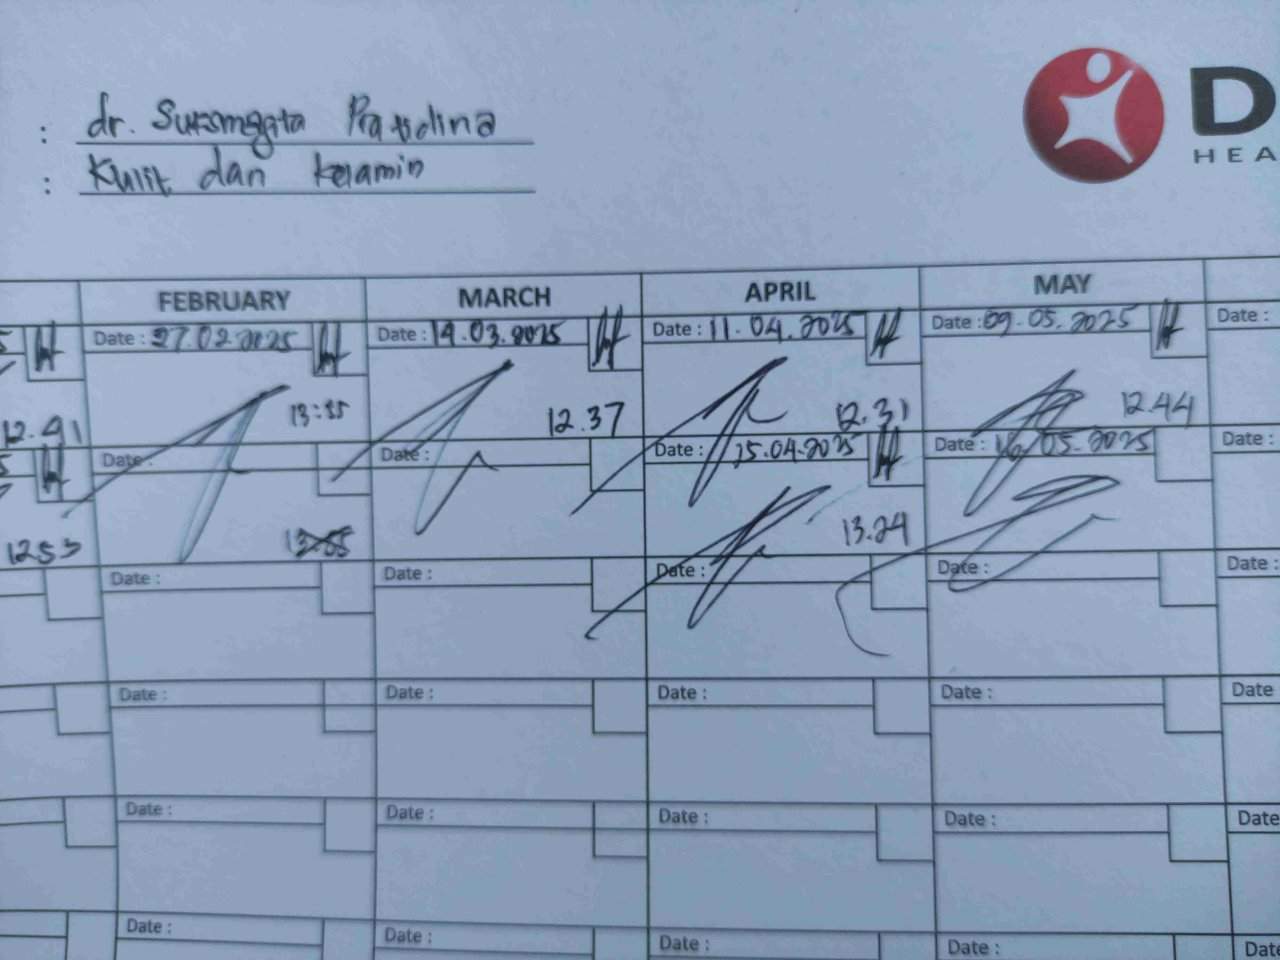 : dr. Suksmagita Pratidina
: Kulit dan kelamin
D
HEA
FEBRUARY MARCH APRIL MAY
Date : 27.02.2025 Date : 14.03.2025 Date : 11.04.2025 Date : 09.05.2025 Date :
12.41 13:35 12.37 12.31 12.44
Date : Date : Date : 25.04.2025 Date : 16.05.2025 Date :
1253 13.24
Date : Date : Date : Date : Date :
Date : Date : Date : Date : Date
Date : Date : Date : Date : Date
Date : Date : Date : Date : Date